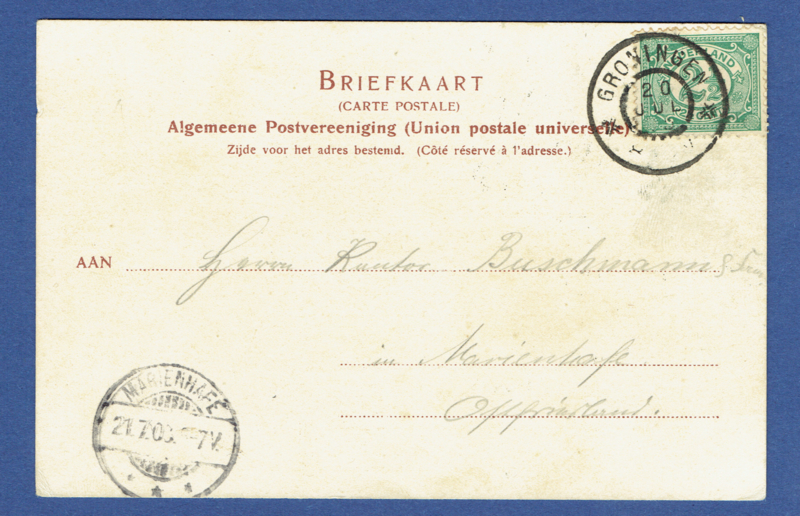 BRIEFKAART
(CARTE POSTALE)
Algemeene Postvereeniging (Union postale universelle)
Zijde voor het adres bestemd. (Côté réservé à l'adresse.)
GRONINGEN
20
JUL
NEDERLAND
AAN Herrn Kantor Buschmann & Frau
in Marienhafe
Ostfriesland.
MARIENHAFE
21.7.03. 7V.